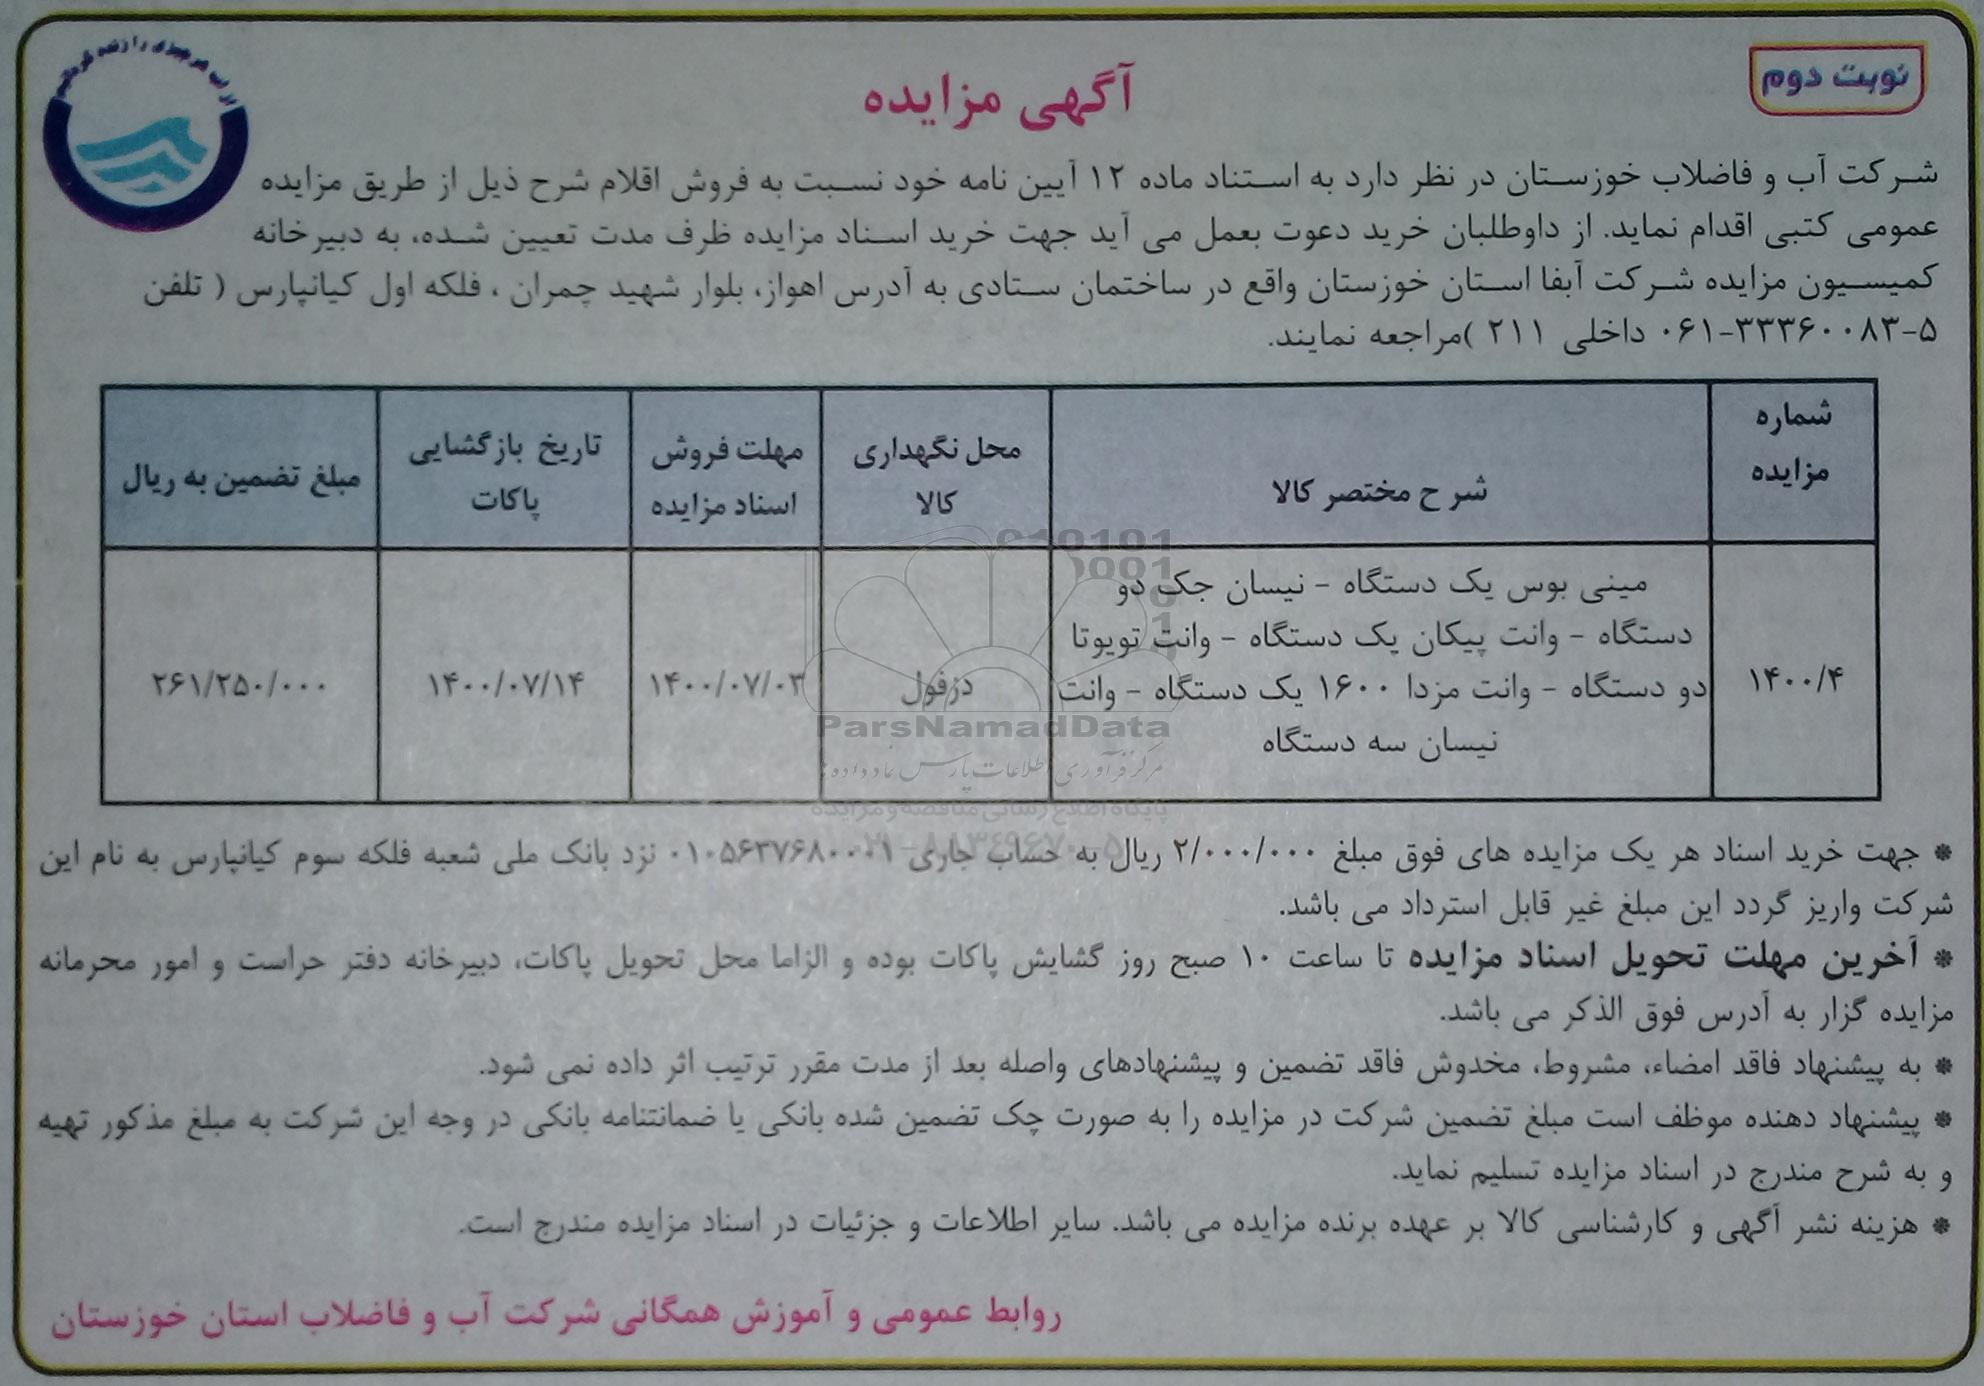 از آب هر چیزی را زنده گردانیدیم
نوبت دوم
آگهی مزایده
شرکت آب و فاضلاب خوزستان در نظر دارد به استناد ماده ۱۲ آیین نامه خود نسبت به فروش اقلام شرح ذیل از طریق مزایده
عمومی کتبی اقدام نماید. از داوطلبان خرید دعوت بعمل می آید جهت خرید اسناد مزایده ظرف مدت تعیین شده، به دبیرخانه
کمیسیون مزایده شرکت آبفا استان خوزستان واقع در ساختمان ستادی به آدرس اهواز، بلوار شهید چمران ، فلکه اول کیانپارس ( تلفن
۵-۰۶۱-۳۳۳۶۰۰۸۳ داخلی ۲۱۱ )مراجعه نمایند.
شماره مزایده
شرح مختصر کالا
محل نگهداری کالا
مهلت فروش اسناد مزایده
تاریخ بازگشایی پاکات
مبلغ تضمین به ریال
۱۴۰۰/۴
مینی بوس یک دستگاه - نیسان جک دو
دستگاه - وانت پیکان یک دستگاه - وانت تویوتا
دو دستگاه - وانت مزدا ۱۶۰۰ یک دستگاه - وانت
نیسان سه دستگاه
دزفول
۱۴۰۰/۰۷/۰۳
۱۴۰۰/۰۷/۱۴
۲۶۱/۲۵۰/۰۰۰
ParsNamadData
مرکز فرآوری اطلاعات پارس نماد داده ها
پایگاه اطلاع رسانی مناقصه و مزایده
۰۲۱-۸۸۳۴۹۶۷۰-۵
* جهت خرید اسناد هر یک مزایده های فوق مبلغ ۲/۰۰۰/۰۰۰ ریال به حساب جاری ۰۱۰۵۶۳۷۶۸۰۰۰۱ نزد بانک ملی شعبه فلکه سوم کیانپارس به نام این
شرکت واریز گردد این مبلغ غیر قابل استرداد می باشد.
* آخرین مهلت تحویل اسناد مزایده تا ساعت ۱۰ صبح روز گشایش پاکات بوده و الزاما محل تحویل پاکات، دبیرخانه دفتر حراست و امور محرمانه
مزایده گزار به آدرس فوق الذکر می باشد.
* به پیشنهاد فاقد امضاء، مشروط، مخدوش فاقد تضمین و پیشنهادهای واصله بعد از مدت مقرر ترتیب اثر داده نمی شود.
* پیشنهاد دهنده موظف است مبلغ تضمین شرکت در مزایده را به صورت چک تضمین شده بانکی یا ضمانتنامه بانکی در وجه این شرکت به مبلغ مذکور تهیه
و به شرح مندرج در اسناد مزایده تسلیم نماید.
* هزینه نشر آگهی و کارشناسی کالا بر عهده برنده مزایده می باشد. سایر اطلاعات و جزئیات در اسناد مزایده مندرج است.
روابط عمومی و آموزش همگانی شرکت آب و فاضلاب استان خوزستان